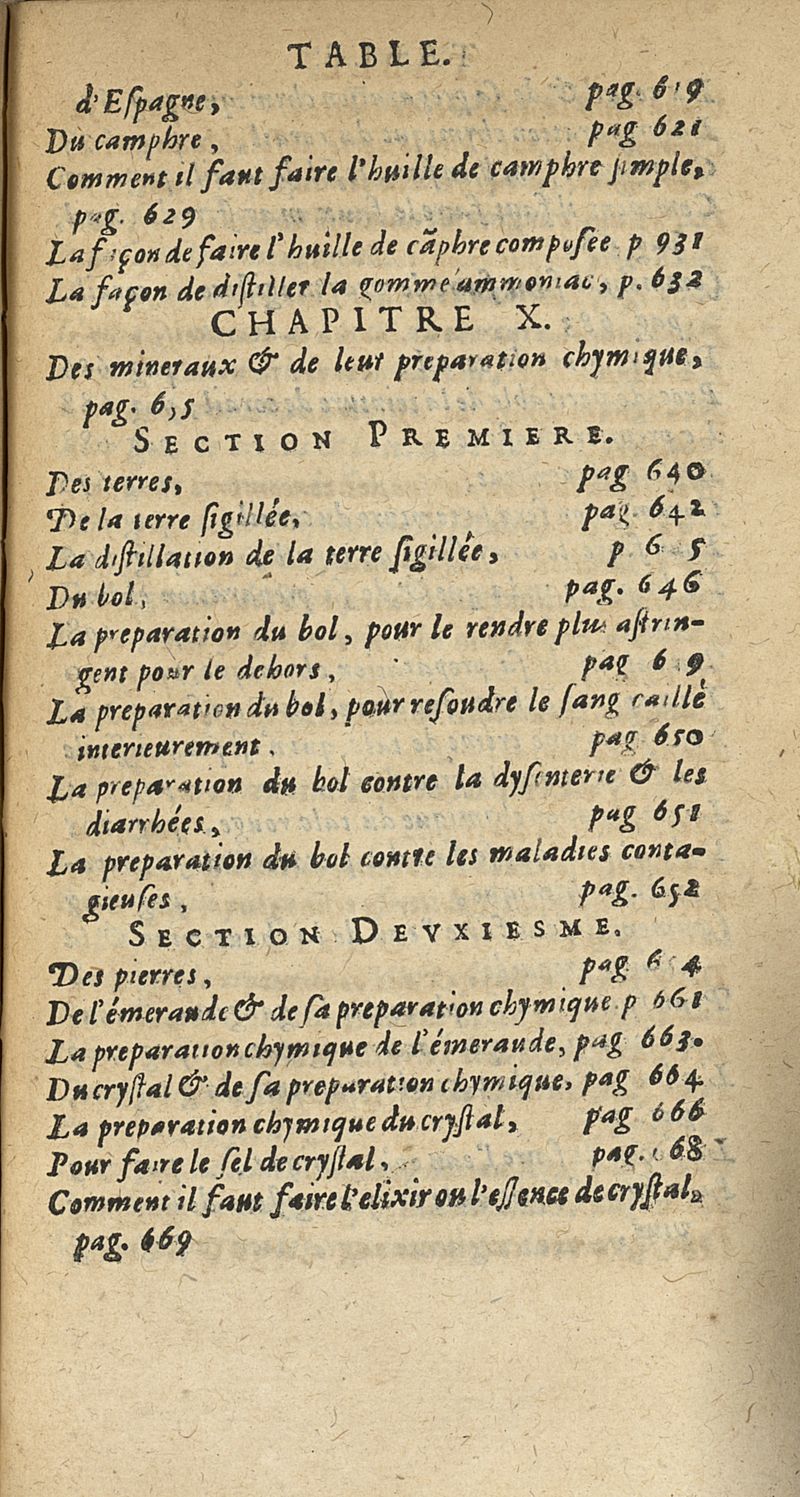 TABLE.
d'Eſpagne, pag. 619
Du camphre, pag 621
Comment il faut faire l'huille de camphre ſimple,
pag. 629
La façon de faire l'huille de cãphre composée p 931
La façon de distiller la gomme ammoniac, p. 632
CHAPITRE X.
Des mineraux & de leur preparation chymique,
pag.
SECTION PREMIERE.
Des terres, pag 640
De la terre ſigillée, pag. 642
La diſtillation de la terre ſigillée, p
Du bol, pag. 646
La preparation du bol, pour le rendre plus aſtrin-
gent pour le dehors, pag
La preparation du bol, pour reſoudre le ſang caillé
interieurement. pag 650
La preparation du bol contre la dyſenterie & les
diarrhées, pag 651
La preparation du bol contre les maladies conta-
gieuſes, pag. 652
SECTION DEVXIESME.
Des pierres, pag
De l'émeraude & de ſa preparation chymique p 661
La preparation chymique de l'émeraude, pag 663.
Du cryſtal & de ſa preparation chymique, pag 664
La preparation chymique du cryſtal, pag 666
Pour faire le ſel de cryſtal, pag.
Comment il faut faire l'elixir ou l'eſſence de cryſtal,
pag. 669